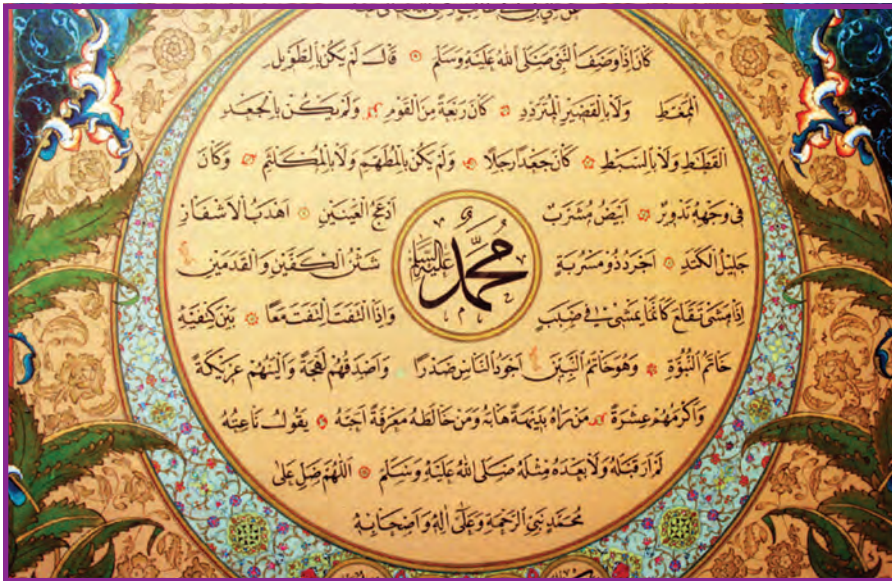 كَانَ اِذَا وَصَفَ النَّبِيَّ صَلَّى اللهُ عَلَيْهِ وَسَلَّمَ قَالَ لَمْ يَكُنْ بِالطَّوِيلِ
الْمُمَغَّطِ وَلَا بِالْقَصِيرِ الْمُتَرَدِّدِ كَانَ رَبْعَةً مِنَ الْقَوْمِ وَلَمْ يَكُنْ بِالْجَعْدِ
الْقَطَطِ وَلَا بِالسَّبِطِ كَانَ جَعْدًا رَجِلًا وَلَمْ يَكُنْ بِالْمُطَهَّمِ وَلَا بِالْمُكَلْثَمِ وَكَانَ
فِي وَجْهِهِ تَدْوِيرٌ اَبْيَضُ مُشْرَبٌ اَدْعَجُ الْعَيْنَيْنِ اَهْدَبُ الْاَشْفَارِ
جَلِيلُ الْكَتَدِ اَجْرَدُ ذُو مَسْرُبَةٍ شَثْنُ الْكَفَّيْنِ وَالْقَدَمَيْنِ
مُحَمَّدٌ عَلَيْهِ السَّلَامُ
اِذَا مَشَى تَقَلَّعَ كَاَنَّمَا يَمْشِي فِي صَبَبٍ وَاِذَا الْتَفَتَ الْتَفَتَ مَعًا بَيْنَ كَتِفَيْهِ
خَاتَمُ النُّبُوَّةِ وَهُوَ خَاتَمُ النَّبِيِّينَ اَجْوَدُ النَّاسِ صَدْرًا وَاَصْدَقُهُمْ لَهْجَةً وَاَلْيَنُهُمْ عَرِيكَةً
وَاَكْرَمُهُمْ عِشْرَةً مَنْ رَاٰهُ بَدِيهَةً هَابَهُ وَمَنْ خَالَطَهُ مَعْرِفَةً اَحَبَّهُ يَقُولُ نَاعِتُهُ
لَمْ اَرَ قَبْلَهُ وَلَا بَعْدَهُ مِثْلَهُ صَلَّى اللهُ عَلَيْهِ وَسَلَّمَ اَللّٰهُمَّ صَلِّ عَلَى
مُحَمَّدٍ نَبِيِّ الرَّحْمَةِ وَعَلَى اٰلِهِ وَاَصْحَابِهِ